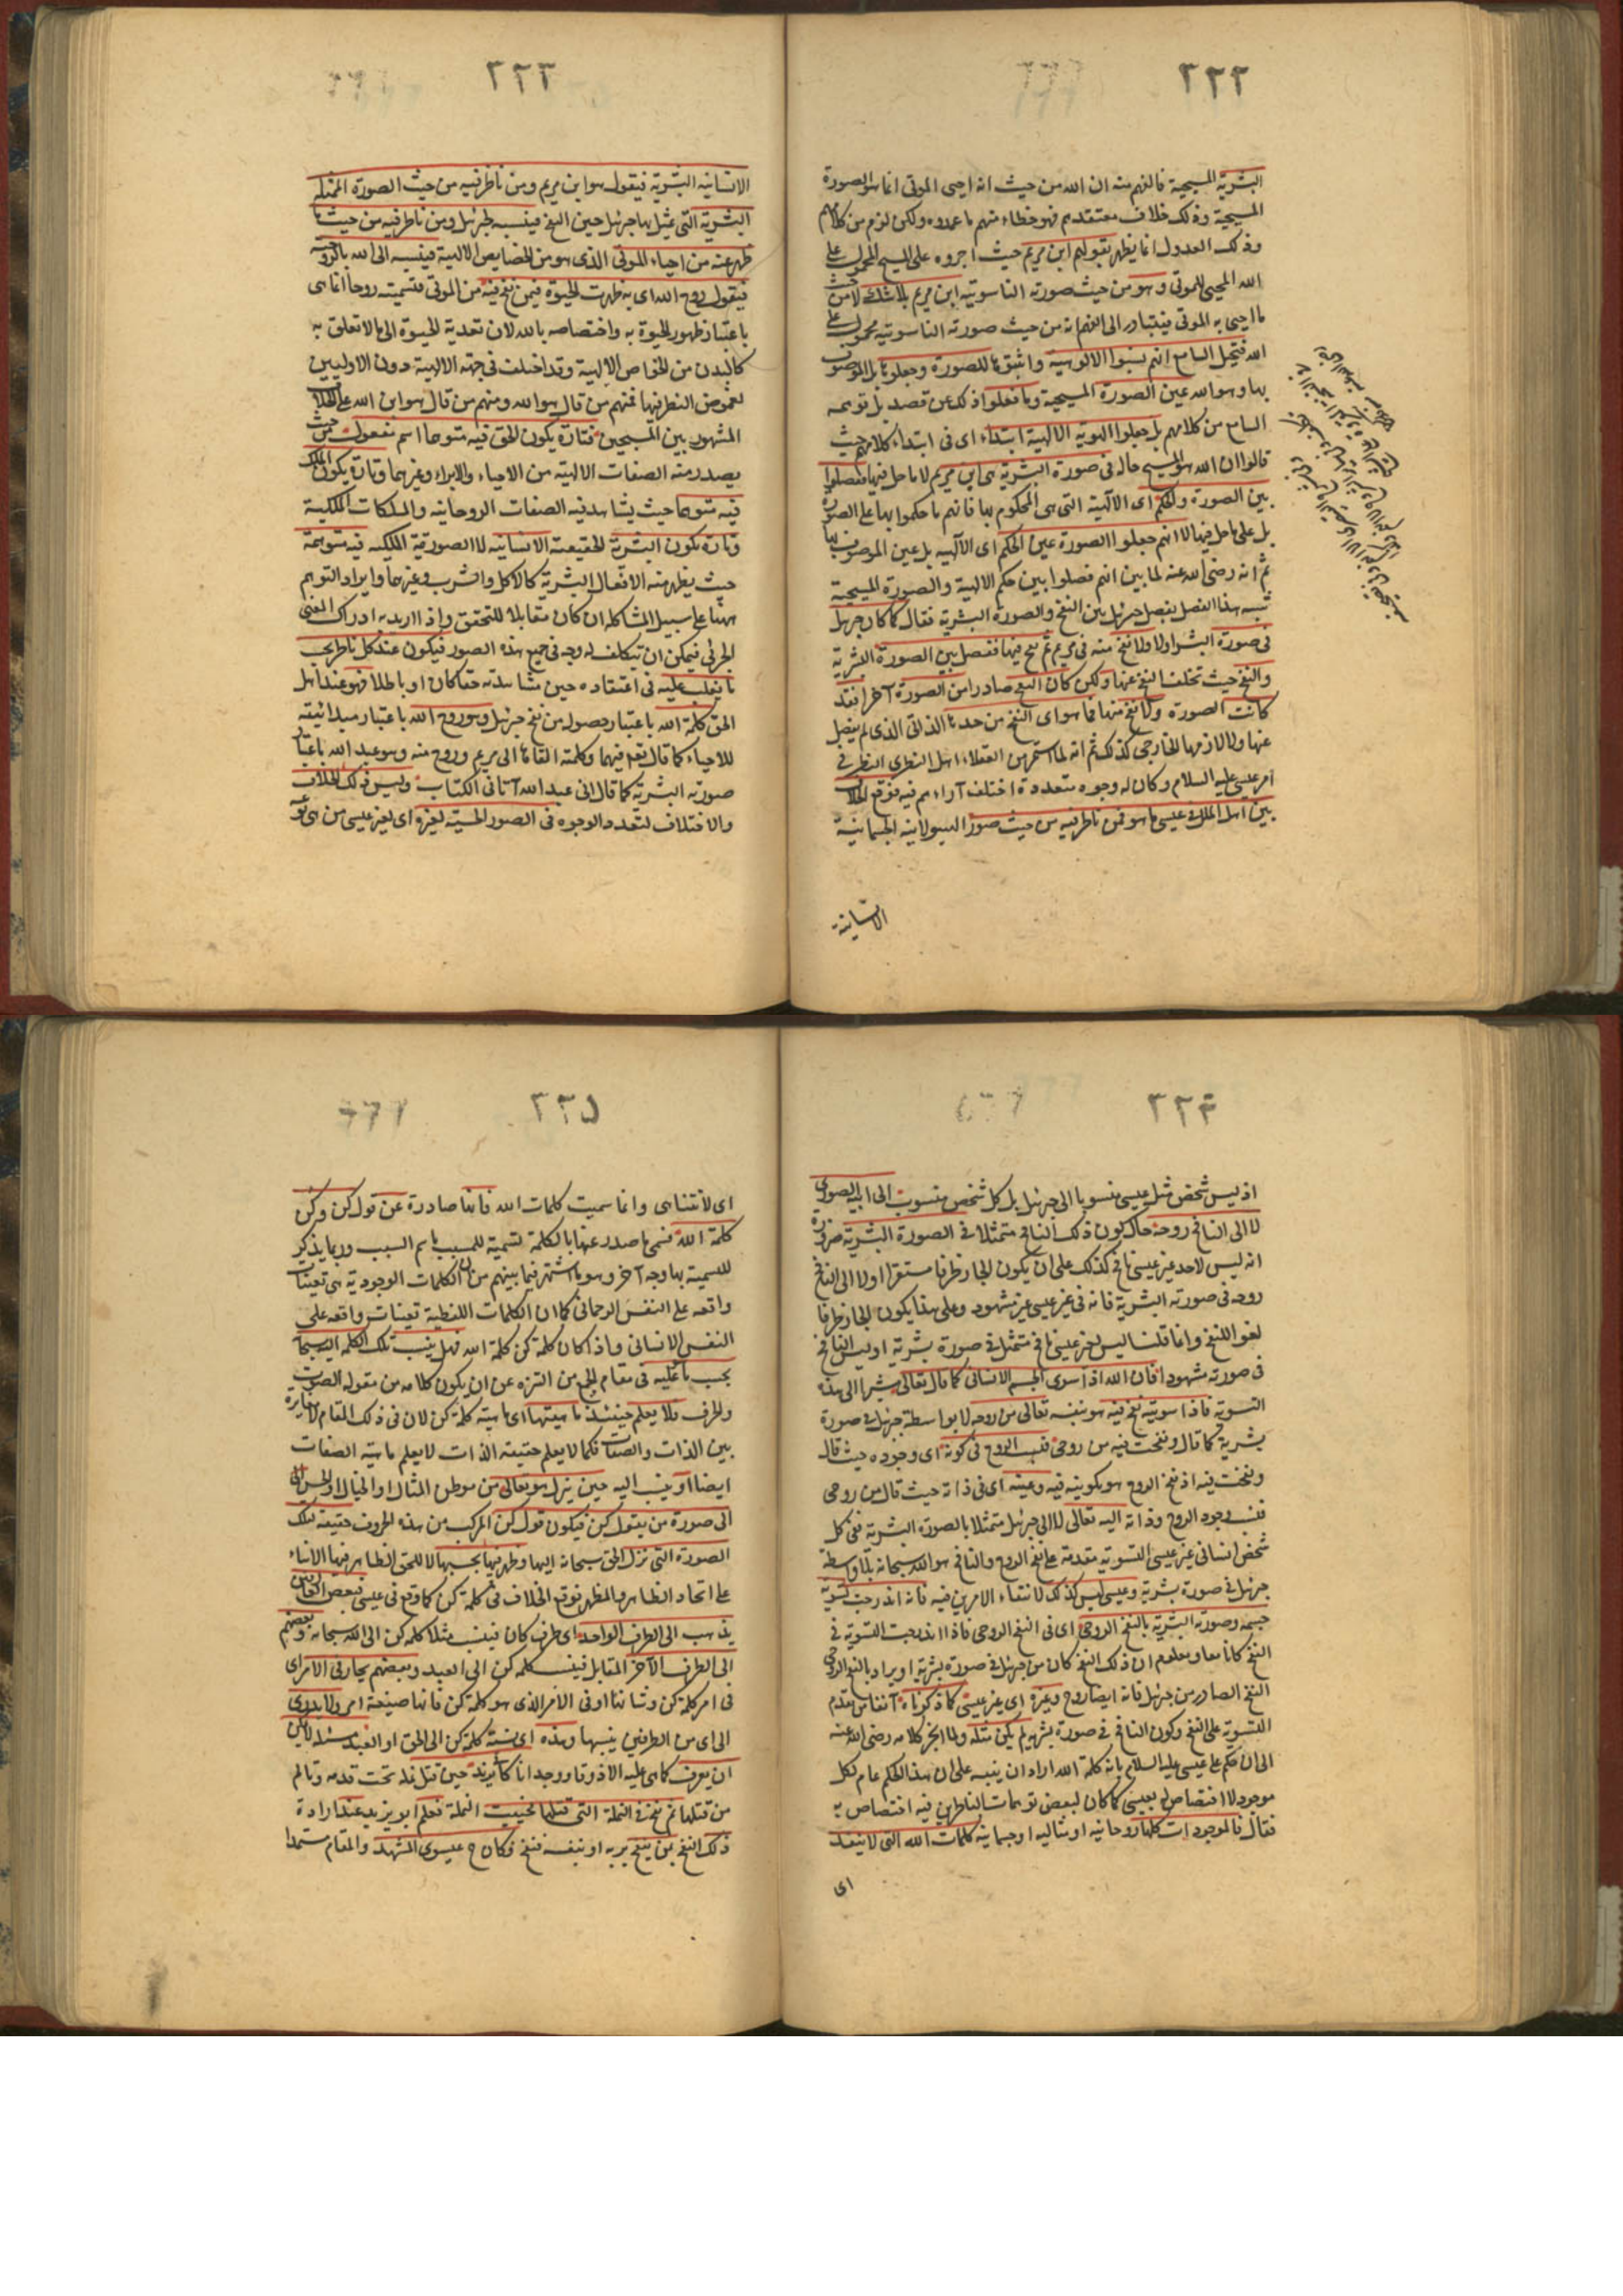 ٢٢٢
البشرية المسيحية فالفهم منه ان الله من حيث انه احيى الموتى انما هو الصورة
المسيحية وذلك خلاف معتقدهم فهو خطاء منهم ما عمدوه ولكن لزم من كلامهم
وذلك العدول انما يظهر بقولهم ابن مريم حيث اجروه على المسيح المحمول على
الله المحيى للموتى وهو من حيث صورته الناسوتية ابن مريم بلا شك لا من حيث
ما احيى به الموتى فيتبادر الى الفهم انه من حيث صورته الناسوتية محمول على
الله فتخيل السامع انهم نسبوا الالوهية واثبتوها للصورة وجعلوها بل الموصوف
بها وهو الله عين الصورة المسيحية وما فعلوا ذلك عن قصد بل توهمه
السامع من كلامهم بل جعلوا الهوية الالهية ابتداء اى فى ابتداء كلامهم حيث
قالوا ان الله هو المسيح حاله فى صورة البشرية هى ابن مريم لا ما حل فيها ففصلوا
بين الصورة والحكم اى الالهية التى هى المحكوم بها فانهم ما حكموا بها على الصورة
بل على ما حل فيها لا انهم جعلوا الصورة عين الحكم اى الالهية بل عين الموصوف بها
ثم انه رضى الله عنه لما بين انهم فصلوا بين حكم الالهية والصورة المسيحية
شبه هذا الفصل بفصل جبرئيل بين النفخ والصورة البشرية فقال كما كان جبرئيل
فى صورة البشر اولا ولا نفخ منه فى مريم ثم نفخ فيها ففصل بين الصورة البشرية
والنفخ حيث تخلف النفخ عنها ولكن كان النفخ صادرا من الصورة آخرا فقد
كانت الصورة ولا نفخ منها فما هو اى النفخ من حدها الذاتى الذى لم ينفصل
عنها ولا لازمها الخارجى كذلك ثم انه لما استمر من العقلاء اهل النظرى النظر فى
امر عيسى عليه السلام وكان له وجوه متعددة اختلف آراءهم فيه فوقع الخلاف
بين اهل الملل فى عيسى ما هو فمن ناظر فيه من حيث صورة الهيولانية الجسمانية
الانسانية
٢٢٣
الانسانية البشرية فيقول هو ابن مريم ومن ناظر فيه من حيث الصورة الممثلة
البشرية التى تمثل بها جبرئيل حين النفخ فينسبه لجبرئيل ومن ناظر فيه من حيث ما
ظهر عنه من احياء الموتى الذى هو من الخصايص الالهية فينسبه الى الله بالروحية
فيقول روح الله اى به ظهرت الحيوة فيمن نفخ فيه من الموتى فتسميته روحا انما هى
باعتبار ظهور الحيوة به واختصاصه بالله لان تعدية الحيوة الى ما لا تعلق به
كالبدن من الخواص الالهية وقد اختلف فى جهة الالهية دون الاوليين
لغموض النظر فيها فمنهم من قال هو الله ومنهم من قال هو ابن الله على الخلاف
المشهور بين المسيحيين فتارة يكون الحق فيه متوهما اسم مفعول من حيث
يصدر منه الصفات الالهية من الاحياء والابراء وغيرهما وتارة يكون الملك
فيه متوهما حيث يشاهد فيه الصفات الروحانية والملكات الملكية
وتارة تكون البشرية لحقيقة الانسانية لا الصورية الملكية فيه متوهمة
حيث يظهر منه الافعال البشرية كالاكل والشرب وغيرهما وايراد التوهم
ههنا على سبيل المشاكلة ان كان مقابلا للتحقق واذا اريد به ادراك المعنى
الجزئى فيمكن ان يتكلف له وجه فى جميع هذه الصور فيكون عند كل ناظر بحسب
ما يغلب عليه فى اعتقاده حين مشاهدته حقا كان او باطلا فهو عند اهل
الحق كلمة الله باعتبار حصوله من نفخ جبرئيل وهو روح الله باعتبار مبدائيته
للاحياء كما قال تعه فيهما وكلمته القاها الى مريم وروح منه وهو عبد الله باعتبار
صورته البشرية كما قال انى عبد الله آتانى الكتاب وليس ذلك الخلاف
والاختلاف لتعدد الوجوه فى الصور الحسية لغيره اى لغير عيسى من
٢٢٤
اذ ليس شخص مثل عيسى منسوبا الى جبرئيل بل كل شخص منسوب الى ابيه الصورى
لا الى النافخ روحه حال كون ذلك النافخ متمثلا فى الصورة البشرية ضرورة
انه ليس لاحد غير عيسى نافخ كذلك على ان يكون الجار ظرفا مستقرا اولا الى النافخ
روحه فى صورته البشرية فانه فى غير عيسى غير مشهود وعلى هذا يكون الجار ظرفا
لغوا للنفخ وانما قلنا ليس لغير عيسى نافخ متمثل فى صورة بشرية او ليس النافخ
فى صورته مشهودا فان الله اذا سوى الجسم الانسانى كما قال تعالى مشيرا الى هذه
التسوية فاذا سويته نفخ فيه هو بنفسه تعالى من روحه لا بواسطة جبرئيل فى صورة
بشرية كما قال ونفخت فيه من روحى فنسب الروح فى كونه اى وجوده حيث قال
ونفخت فيه اذ نفخ الروح هو بكوينه فيه وعينه اى فى ذاته حيث قال من روحى
فنسب وجود الروح وذاته اليه تعالى لا الى جبرئيل متمثلا بالصورة البشرية ففى كل
شخص انسانى غير عيسى التسوية مقدمة على نفخ الروح والنافخ هو الله سبحانه بلا واسطة
جبرئيل فى صورة بشرية وعيسى ليس كذلك لانتفاء الامرين فيه فانه اندرجت تسوية
جسمه وصورته البشرية بالنفخ الروحى اى فى النفخ الروحى فاذا اندرجت التسوية فى
النفخ كانا معا ومعلوم ان ذلك النفخ كان من جبرئيل فى صورة بشرية او يراد بالنفخ الروحى
النفخ الصادر من جبرئيل فانه ايضا روح وغيره اى غير عيسى كما ذكرناه آنفا من تقدم
التسوية على النفخ وكون النافخ فى صورة بشرية لم يكن مثله ولما انجر كلامه رضى الله عنه
الى ان حكم على عيسى عليه السلام بانه كلمة الله اراد ان ينبه على ان هذا الحكم عام لكل
موجود لا اختصاص له بعيسى كما كان لبعض توهمات الناظرين فيه اختصاص به
فقال فالموجودات كلها روحانية او مثالية او جسمانية كلمات الله التى لا ينفد
اى
٢٢٥
اى لا تتناهى وانما سميت كلمات الله فانها صادرة عن قول كن وكن
كلمة الله فسمى ما صدر عنها بالكلمة تسمية للمسبب باسم السبب وربما يذكر
للتسمية بها وجه آخر وهو ما اشتهر فيما بينهم من ان الكلمات الوجودية هى تعينات
واقعه على النفس الرحمانى كما ان الكلمات اللفظية تعينات واقعه على
النفس الانسانى واذا كان كلمة كن كلمة الله فهل ينسب تلك الكلمة اليه سبحانه
بحسب ما عليه فى مقام الجمع من التنزه عن ان يكون كلامه من مقوله الصوت
والحرف فلا يعلم حينئذ ماهيتها اى ماهية كلمة كن لان فى ذلك المقام لا مغايرة
بين الذات والصفات فكما لا يعلم حقيقة الذات لا يعلم ماهية الصفات
ايضا او ينسب اليه حين ينزل هو تعالى من موطن المثال او الخيال او الحس الى
الى صورة من يقول كن فيكون قول كن المركب من هذه الحروف حقيقة لتلك
الصورة التى نزل الحق سبحانه اليها وظهر فيها بحسبها لا للحق الظاهر فيها الا بناء
على اتحاد الظاهر والمظهر فوقع الخلاف فى كلمة كن كما وقع فى عيسى فبعض العارفين
يذهب الى الطرف الواحد اى طرف كان فينسب مثلا كلمة كن الى الله سبحانه وبعضهم
الى الطرف الآخر المقابل فينسب كلمة كن الى العبد وبعضهم يحار فى الامر اى
فى امر كلمة كن وشانها او فى الامر الذى هو كلمة كن فانها صيغة امر ولا يدرى
الى اى من الطرفين ينسبها وهذه اى نسبة كلمة كن الى الحق او العبد مسئلة لا يمكن
ان يعرف كما هى عليه الا ذوقا ووجدانا كابى يزيد حين قتل نملة تحت قدمه وتالم
من قتلها ثم نفخ فى النملة التى قتلها فحييت النملة فعلم ابو يزيد عند ارادة
ذلك النفخ بمن ينفخ بربه او بنفسه فنفخ فكان ح عيسوى المشهد والمقام مستمدا